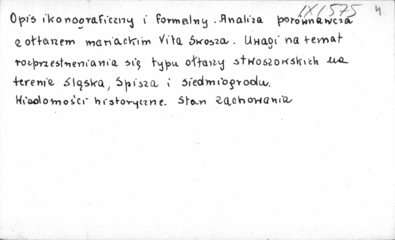 IX/575 4
Opis ikonograficzny i formalny. Analiza porównawcza
z ołtarzem mariackim Wita Stwosza. Uwagi na temat
rozprzestrzeniania się typu ołtarzy stwoszowskich na
terenie Śląska, Spisza i Siedmiogrodu.
Wiadomości historyczne. Stan zachowania